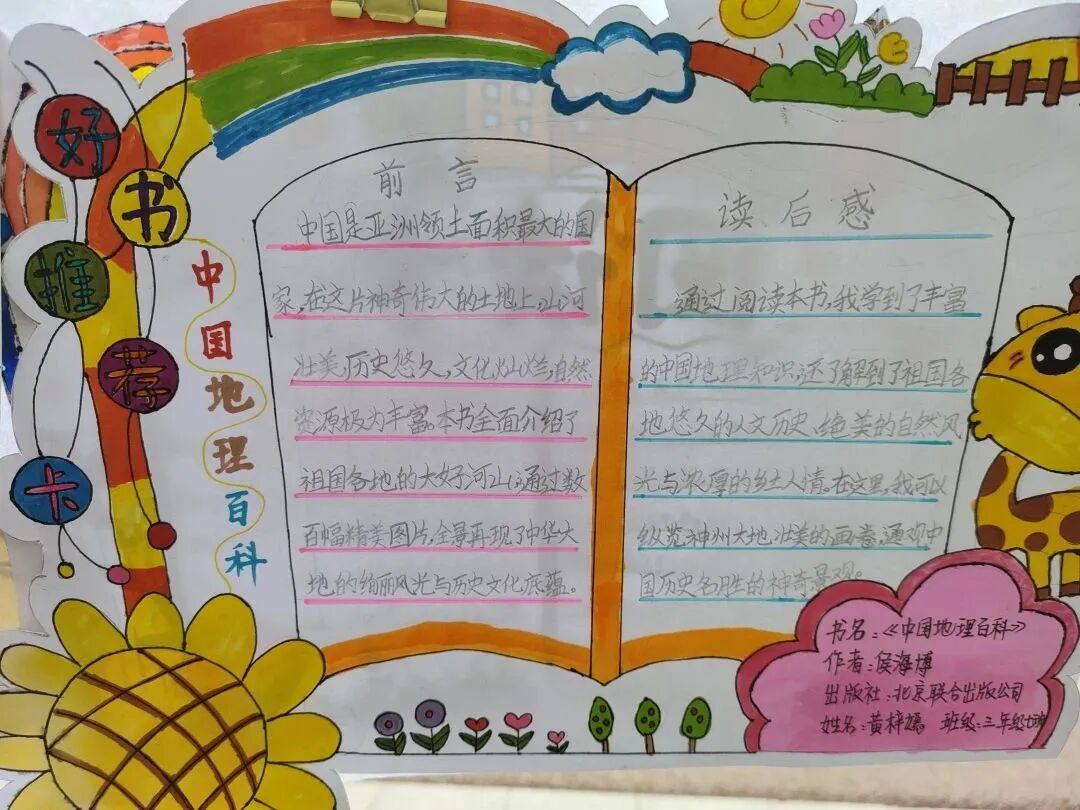 好书推荐卡
中国地理百科
前言
中国是亚洲领土面积最大的国
家,在这片神奇伟大的土地上,山河
壮美,历史悠久,文化灿烂,自然
资源极为丰富。本书全面介绍了
祖国各地的大好河山,通过数
百幅精美图片,全景再现了中华大
地的绚丽风光与历史文化底蕴。
读后感
通过阅读本书,我学到了丰富
的中国地理知识,还了解到了祖国各
地悠久的人文历史、绝美的自然风
光与浓厚的乡土人情。在这里,我可以
纵览神州大地壮美的画卷,通观中
国历史名胜的神奇景观。
书名:《中国地理百科》
作者:侯海博
出版社:北京联合出版公司
姓名:黄梓嫣 班级:三年级七班